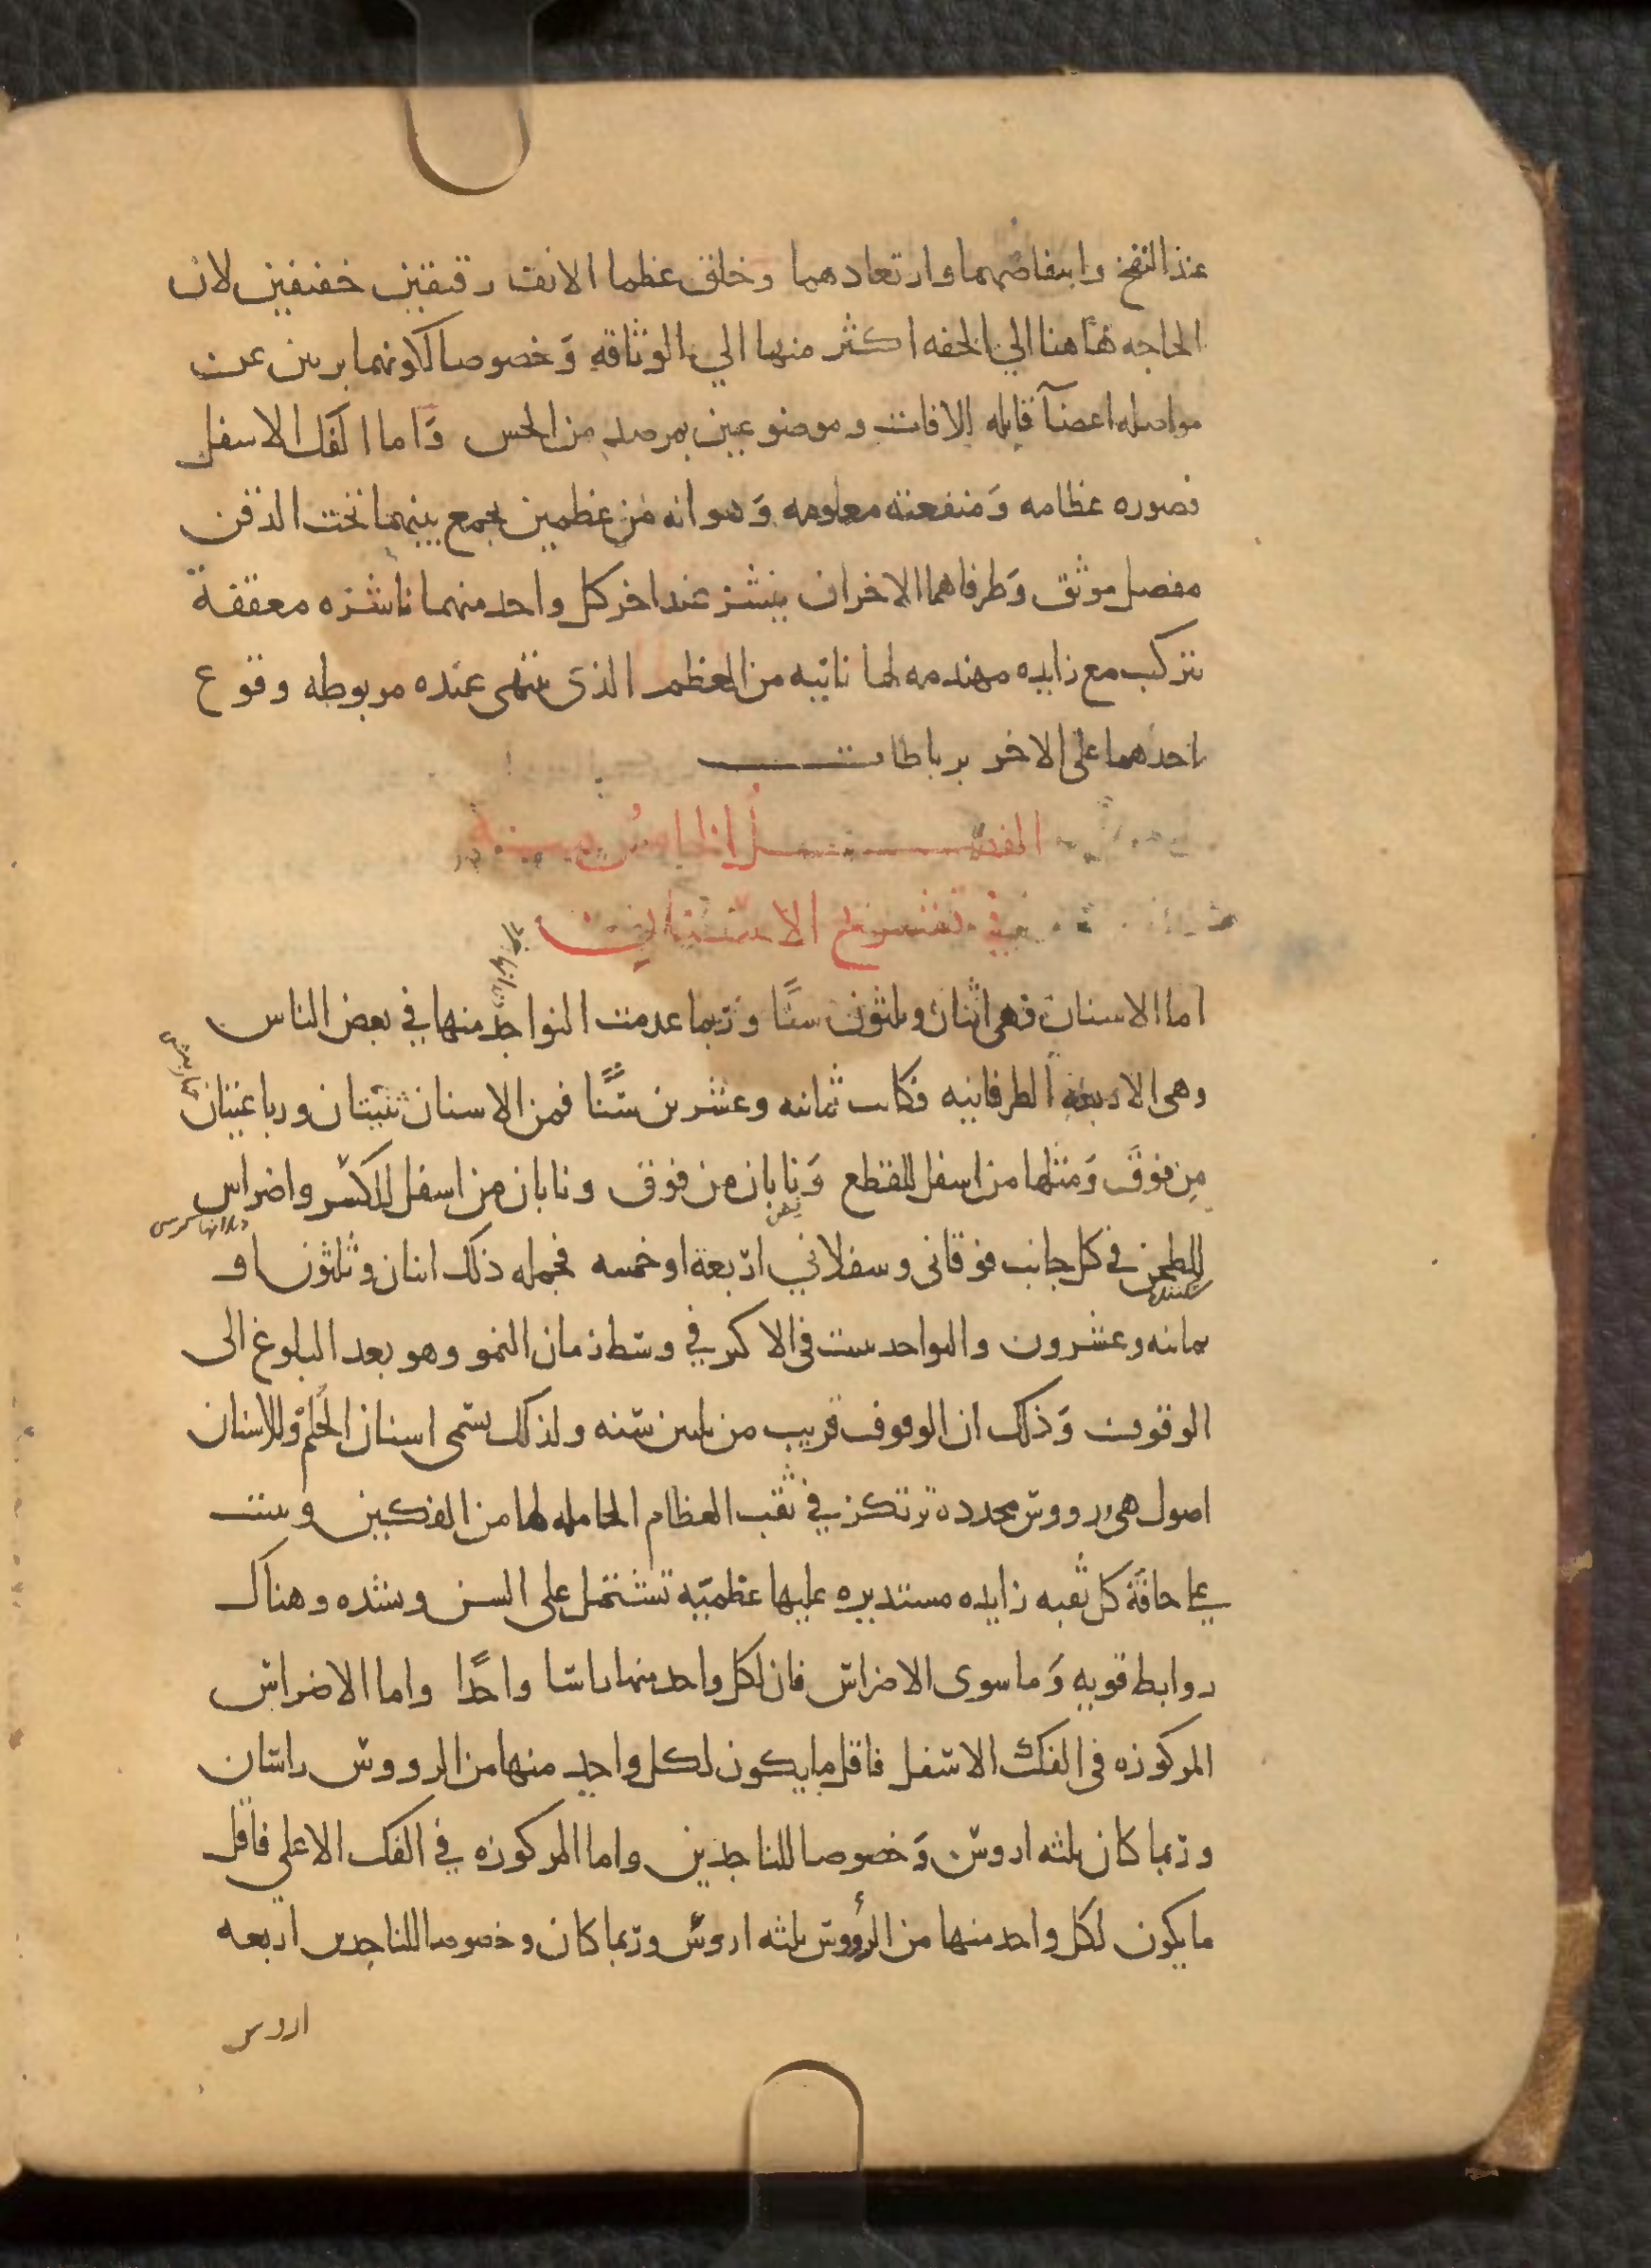 عند النفخ وانتفاضهما وارتعادهما وخلق عظما الانف رقيقين خفيفين لان
الحاجه هاهنا الي الخفه اكثر منها الي الوثاقه وَخصوصا لكونهما بريين عن
مواصله اعضآ قابله الافات وموضوعين بمرصد من الحس وَاما الفك الاسفل
فصوره عظامه وَمنفعته معلومه وَهو انه من عظمين يجمع بينهما تحت الذقن
مفصل موثق وَطرفاهما الاخران ينشز عند اخر كل واحد منهما ناشزه معقفة
تتركب مع زايده مهندمه لها ناتيه من العظم الذى ينتهى عنده مربوطه وقوع
احدهما على الاخر برباطات
الفصل الخامس
في تشريح الاسنان
اما الاسنان فهى اثنان وثلثون سنًا وربما عدمت النواجد منها في بعض الناس
وهى الاربعة الطرفانيه فكانت ثمانيه وعشرين سنًّا فمن الاسنان ثنيتان ورباعيتان
مِن فوقَ وَمثلها من اسفل للقطع وَنابان من فوق ونابان من اسفل للكسر واضراس
للطحن في كل جانب فوقانى وسفلاني اربعة او خمسه فجمله ذلك اثنان وثلثون او
ثمانيه وعشرون والنواجد تنبت فى الاكثر في وسط زمان النمو وهو بعد البلوغ الى
الوقوف وَذلك ان الوقوف قريب من ثلثين سنه ولذلك يسمى اسنان الحُلم وللاسنان
اصول هى رووس محدده ترتكز في ثقب العظام الحامله لها من الفكين وينبت
على حافة كل ثقبه زايده مستديره عليها عظميّه تشتمل على السن ويشده وهناك
روابط قويه وَما سوى الاضراس فان لكل واحد منها راسا واحدًا واما الاضراس
المركوزه فى الفك الاسفل فاقل ما يكون لكل واحد منها من الرووس راسان
وربما كان ثلثه اروس وَخصوصا للناجدين واما المركوزه في الفك الاعلي فاقل
ما يكون لكل واحد منها من الرؤوس ثلثه اروس وربما كان وخصوصا للناجدين اربعه
اروس